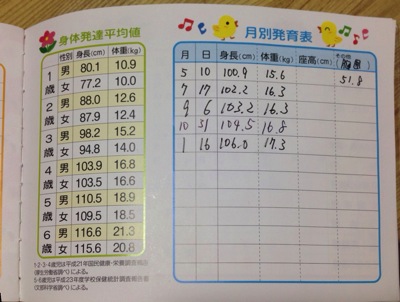 身体発達平均値
性別 身長(cm) 体重(kg)
1歳 男 80.1 10.9
女 77.2 10.0
2歳 男 88.0 12.6
女 87.9 12.4
3歳 男 98.2 15.2
女 94.8 14.0
4歳 男 103.9 16.8
女 103.5 16.6
5歳 男 110.5 18.9
女 109.5 18.5
6歳 男 116.6 21.3
女 115.6 20.8
1・2・3・4歳児は平成21年国民健康・栄養調査報告
(厚生労働省調べ)による。
5・6歳児は平成23年度学校保健統計調査報告書
(文部科学省調べ)による。
月別発育表
月 日 身長(cm) 体重(kg) 座高(cm) その他(胸囲)
5 10 100.9 15.6 51.8
7 17 102.2 16.3
9 6 103.2 16.3
10 31 104.5 16.8
1 16 106.0 17.3